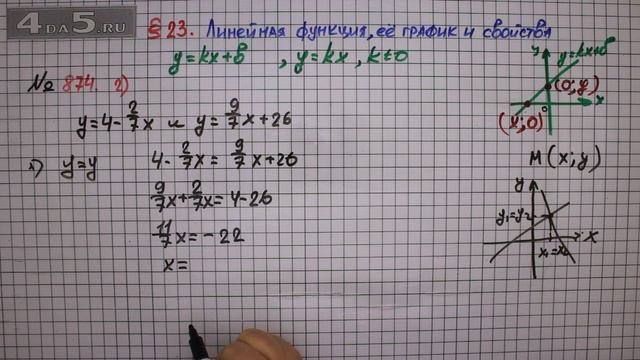 4DA5.RU
§ 23. Линейная функция, её график и свойства
y=kx+b , y=kx, k≠0
№ 874. 2)
y=4-2/7x и y=9/7x+26
1) y=y 4-2/7x=9/7x+26
9/7x+2/7x=4-26
11/7x=-22
x=
y y=kx+b
(0;y)
0 x
(x;0)
M(x;y)
y
y₁=y₂
x
x₁=x₂